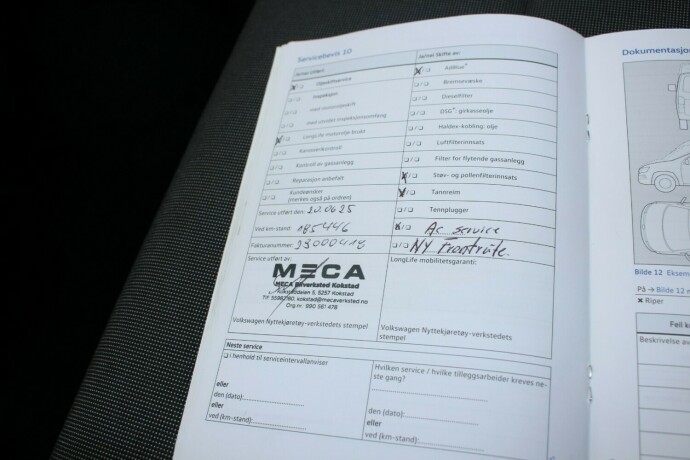 Servicebevis 10
Service utført:
Oljeskiftservice
Inspeksjon
LongLife motorolje brukt
Karosserikontroll
Kontroll av gassanlegg
Reparasjon anbefalt
Kundeønsker
(merkes også på ordren)
Service utført den: 20.06.25
Ved km-stand: 185446
Fakturanummer:
Service utført av:
MECA
MECA Bilverksted Kokstad
5257 Kokstad
kokstad@mecaverksted.no
Org.nr: 990 561 478
Volkswagen Nyttekjøretøy-verkstedets stempel
AdBlue®
Bremsevæske
Dieselfilter
DSG®-girkasseolje
Haldex-kobling: olje
Luftfilterinnsats
Filter for flytende gassanlegg
Støv- og pollenfilterinnsats
Tannreim
Tennplugger
AC service
NY Frontrute.
LongLife mobilitetsgaranti:
Volkswagen Nyttekjøretøy-verkstedets
stempel
Neste service
i henhold til serviceintervallanviser
eller
den (dato):
eller
ved (km-stand):
Hvilken service / hvilke tilleggsarbeider kreves ne-
ste gang?
den (dato):
eller
ved (km-stand):
Dokumentasjon
Bilde 12 Eksem
På → Bilde 12
✖ Riper
Feil k
Beskrivelse av